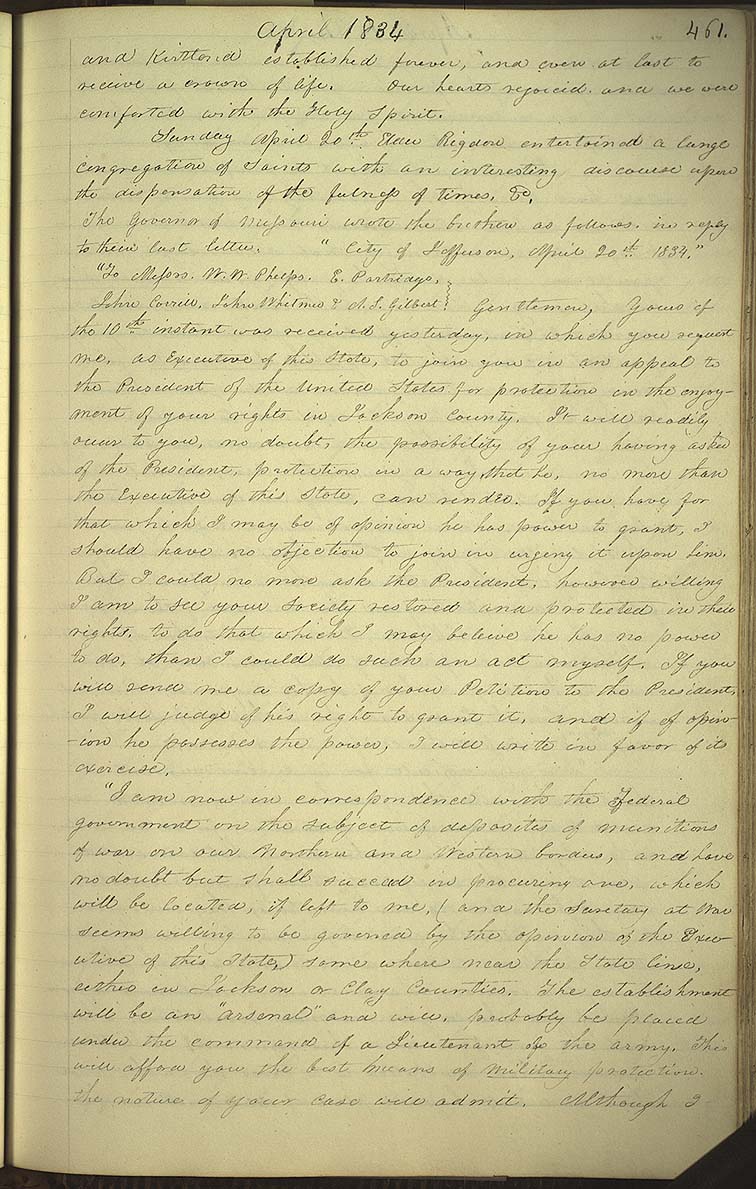 April 1834
461.
and Kirtland established forever, and even at last to
receive a crown of life. Our hearts rejoiced and we were
comforted with the Holy Spirit.
Sunday April 20th. Elder Rigdon entertained a large
congregation of Saints with an interesting discourse upon
the dispensation of the fulness of times, &c.
The Governor of Missouri wrote the brethren as follows. in reply
to their last letter. "City of Jefferson, April 20th 1834."
"To Messrs. W. W. Phelps. E. Partridge,
John Correll, John Whitmer & A. S. Gilbert} Gentlemen, Yours of
the 10th instant was received yesterday, in which you request
me, as Executive of this State, to join you in an appeal to
the President of the United States for protection in the enjoy-
ment of your rights in Jackson County. It will readily
occur to you, no doubt, the possibility of your having asked
of the President, protection in a way that he, no more than
the Executive of this State, can render. If you have for
that which I may be of opinion he has power to grant, I
should have no objection to join in urgeing it upon him.
But I could no more ask the President, however willing
I am to see your Society restored and protected in their
rights, to do that which I may beleive he has no power
to do, than I could do such an act myself. If you
will send me a copy of your Petition to the President,
I will judge of his right to grant it, and if of opin-
-ion he possesses the power, I will write in favor of its
exercise.
"I am now in correspondence with the Federal
government on the subject of deposites of munitions
of war on our Northern and Western borders, and have
no doubt but shall succeed in procuring one, which
will be located, if left to me, (and the Secretary at War
seems willing to be governed by the opinion of the Exec-
utive of this State,) some where near the State line,
either in Jackson or Clay Counties. The establishment
will be an "arsenal" and will, probably be placed
under the command of a Lieutenant of the army. This
will afford you the best means of military protection.
the nature of your case will admit. Although I